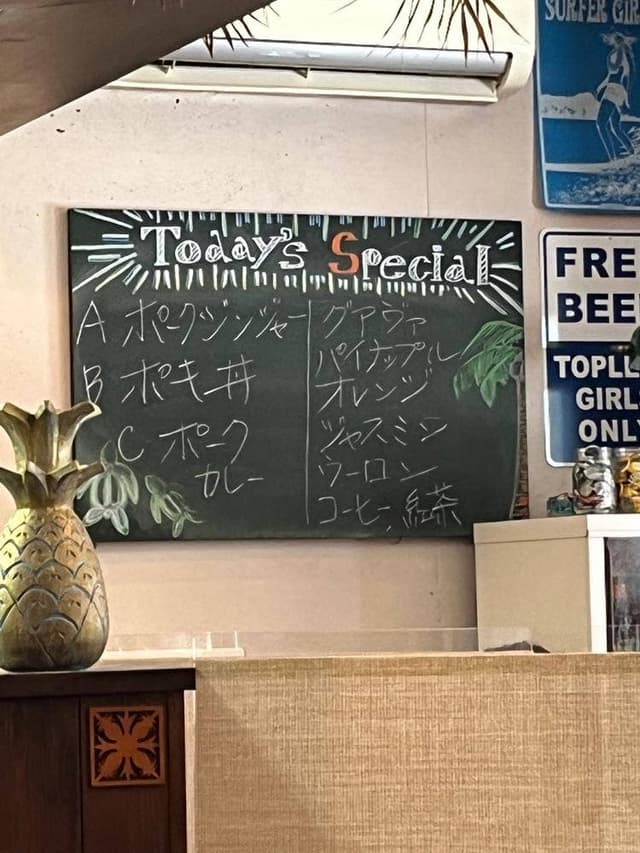 Today's Special
A ポークジンジャー
B ポキ丼
C ポーク
カレー
グァヴァ
パイナップル
オレンジ
ジャスミン
ウーロン
コーヒー, 紅茶
SURFER GIR
FRE
BEE
TOPLL
GIRL
ONLY